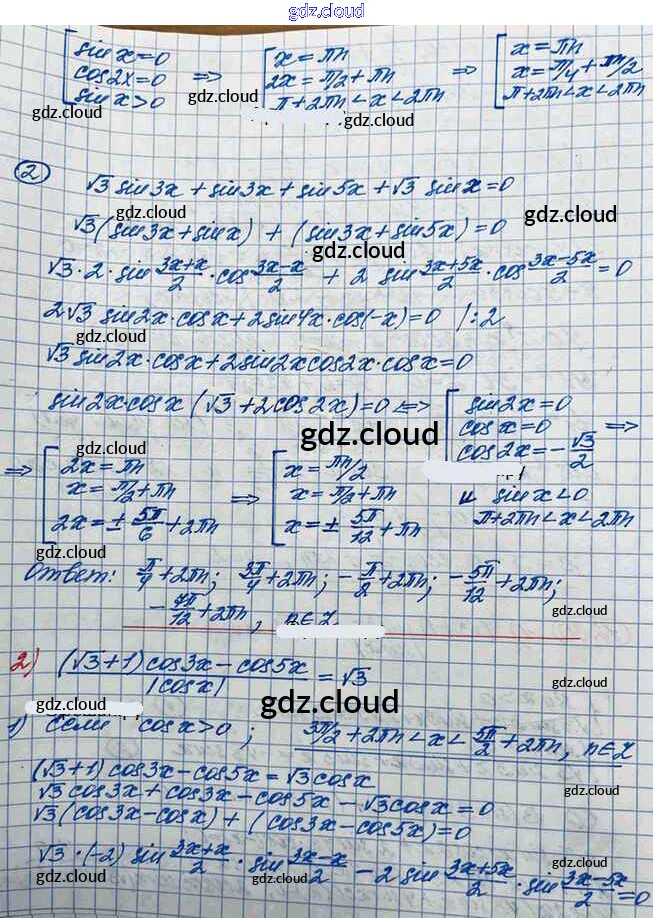 gdz.cloud
[ sin x = 0
cos 2x = 0
sin x > 0 => [ x = πn
2x = π/2 + πn
π + 2πn < x < 2πn => [ x = πn
x = π/4 + πn/2
π + 2πn < x < 2πn
gdz.cloud gdz.cloud gdz.cloud gdz.cloud
② √3 sin 3x + sin 3x + sin 5x + √3 sin x = 0
gdz.cloud gdz.cloud
√3 (sin 3x + sin x) + (sin 3x + sin 5x) = 0
√3 · 2 · sin (3x+x)/2 · cos (3x-x)/2 + 2 sin (3x+5x)/2 · cos (3x-5x)/2 = 0
gdz.cloud gdz.cloud
2√3 sin 2x · cos x + 2 sin 4x · cos(-x) = 0 /:2
gdz.cloud
√3 sin 2x · cos x + 2 sin 2x cos 2x · cos x = 0
gdz.cloud
sin 2x · cos x (√3 + 2 cos 2x) = 0 <=> [ sin 2x = 0
cos x = 0
cos 2x = - √3/2 =>
gdz.cloud gdz.cloud
=> [ 2x = πn
x = π/2 + πn
2x = ± 5π/6 + 2πn => [ x = πn/2
x = π/2 + πn
x = ± 5π/12 + πn
и sin x < 0
π + 2πn < x < 2πn
gdz.cloud gdz.cloud
Ответ: π/4 + 2πn; 3π/4 + 2πn; - π/2 + 2πn; - 5π/12 + 2πn;
- 7π/12 + 2πn, n∈Z
gdz.cloud gdz.cloud
2) ((√3+1) cos 3x - cos 5x)/|cos x| = √3
gdz.cloud gdz.cloud gdz.cloud
1) Если cos x > 0; 3π/2 + 2πn < x < 5π/2 + 2πn, n∈Z
(√3+1) cos 3x - cos 5x = √3 cos x
gdz.cloud
√3 cos 3x + cos 3x - cos 5x - √3 cos x = 0
√3 (cos 3x - cos x) + (cos 3x - cos 5x) = 0
gdz.cloud
√3 · (-2) sin (3x+x)/2 · sin (3x-x)/2 - 2 sin (3x+5x)/2 · sin (3x-5x)/2 = 0
gdz.cloud gdz.cloud gdz.cloud